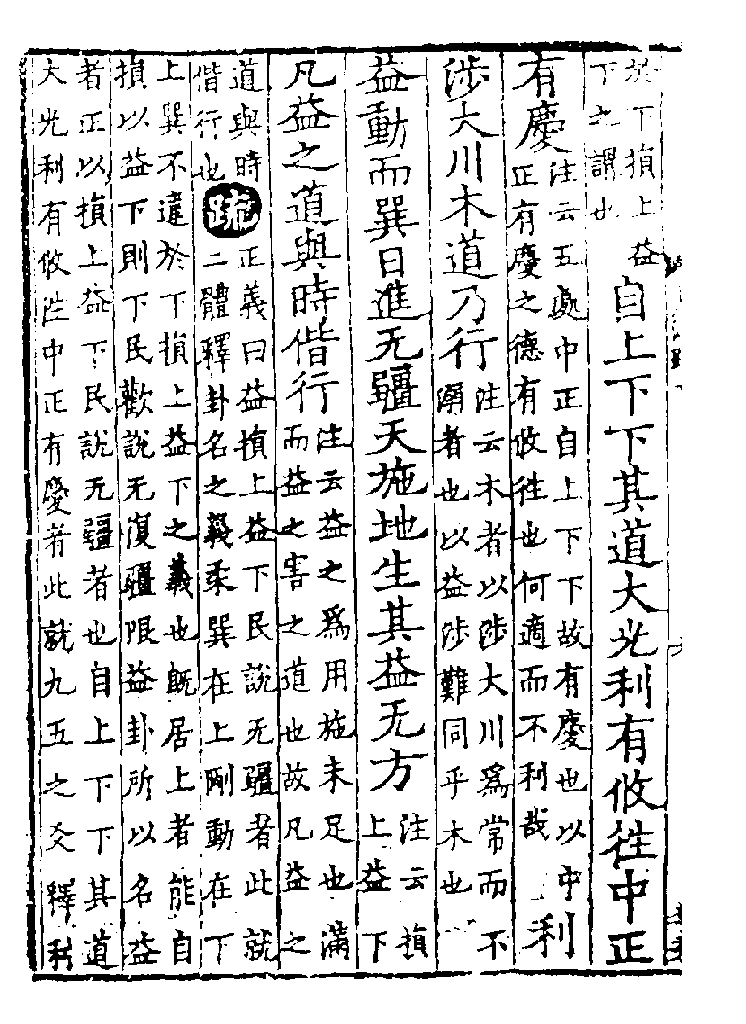 於下損上益下之謂也自上下下其道大光利有攸往中正
有慶注云五處中正自上下下故有慶也以中正有慶之德有攸往也何適而不利哉利
涉大川木道乃行注云木者以涉大川爲常而不溺者也以益涉難同乎木也
益動而巽日進无疆天施地生其益无方注云損上益下
凡益之道與時偕行注云益之爲用施未足也滿而益之害之道也故凡益之
道與時偕行也疏正義曰益損上益下民說无疆者此就二體釋卦名之義柔巽在上剛動在下
上巽不違於下損上益下之義也旣居上者能自損以益下則下民歡說无復疆限益卦所以名益
者正以損上益下民說无疆者也自上下下其道大光利有攸往中正有慶者此就九五之爻釋利